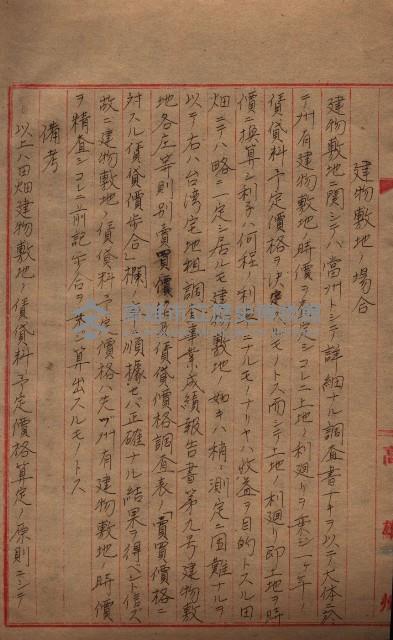 建物敷地ノ場合
建物敷地ニ関シテハ當州トシテ詳細ナル調査書ナキヲ以テ大体ニ於
テ州有建物敷地ノ時價ヲ査定シコレニ土地ノ利廻リヲ乗シ一ヶ年ノ
賃貸料予定價格ヲ決定スルモノトス而シテ土地ノ利廻リ即土地ヲ時
價ニ換算シ利子ハ何程ノ利率ニナルモノナリヤハ收益ヲ目的トスル田
畑ニテハ略々一定シ居ルモ建物敷地ノ如キハ稍々測定ニ困難ナルヲ
以テ右ハ台湾宅地租調査事業成績報告書第九号建物敷
地各庄等則別賣買價格及賃貸價格調査表ノ「賣買價格ニ
対スル賃貸價歩合」欄ニ順據セバ正確ナル結果ヲ得ベシト信ズ
故ニ建物敷地ノ賃貸料予定價格ハ先ヅ州有建物敷地ノ時價
ヲ精査シコレニ前記歩合ヲ乗シ算出スルモノトス
備考
以上ハ田畑建物敷地ノ賃貸料予定價格算定ノ原則ニシテ
高雄州
高雄市立歷史博物館